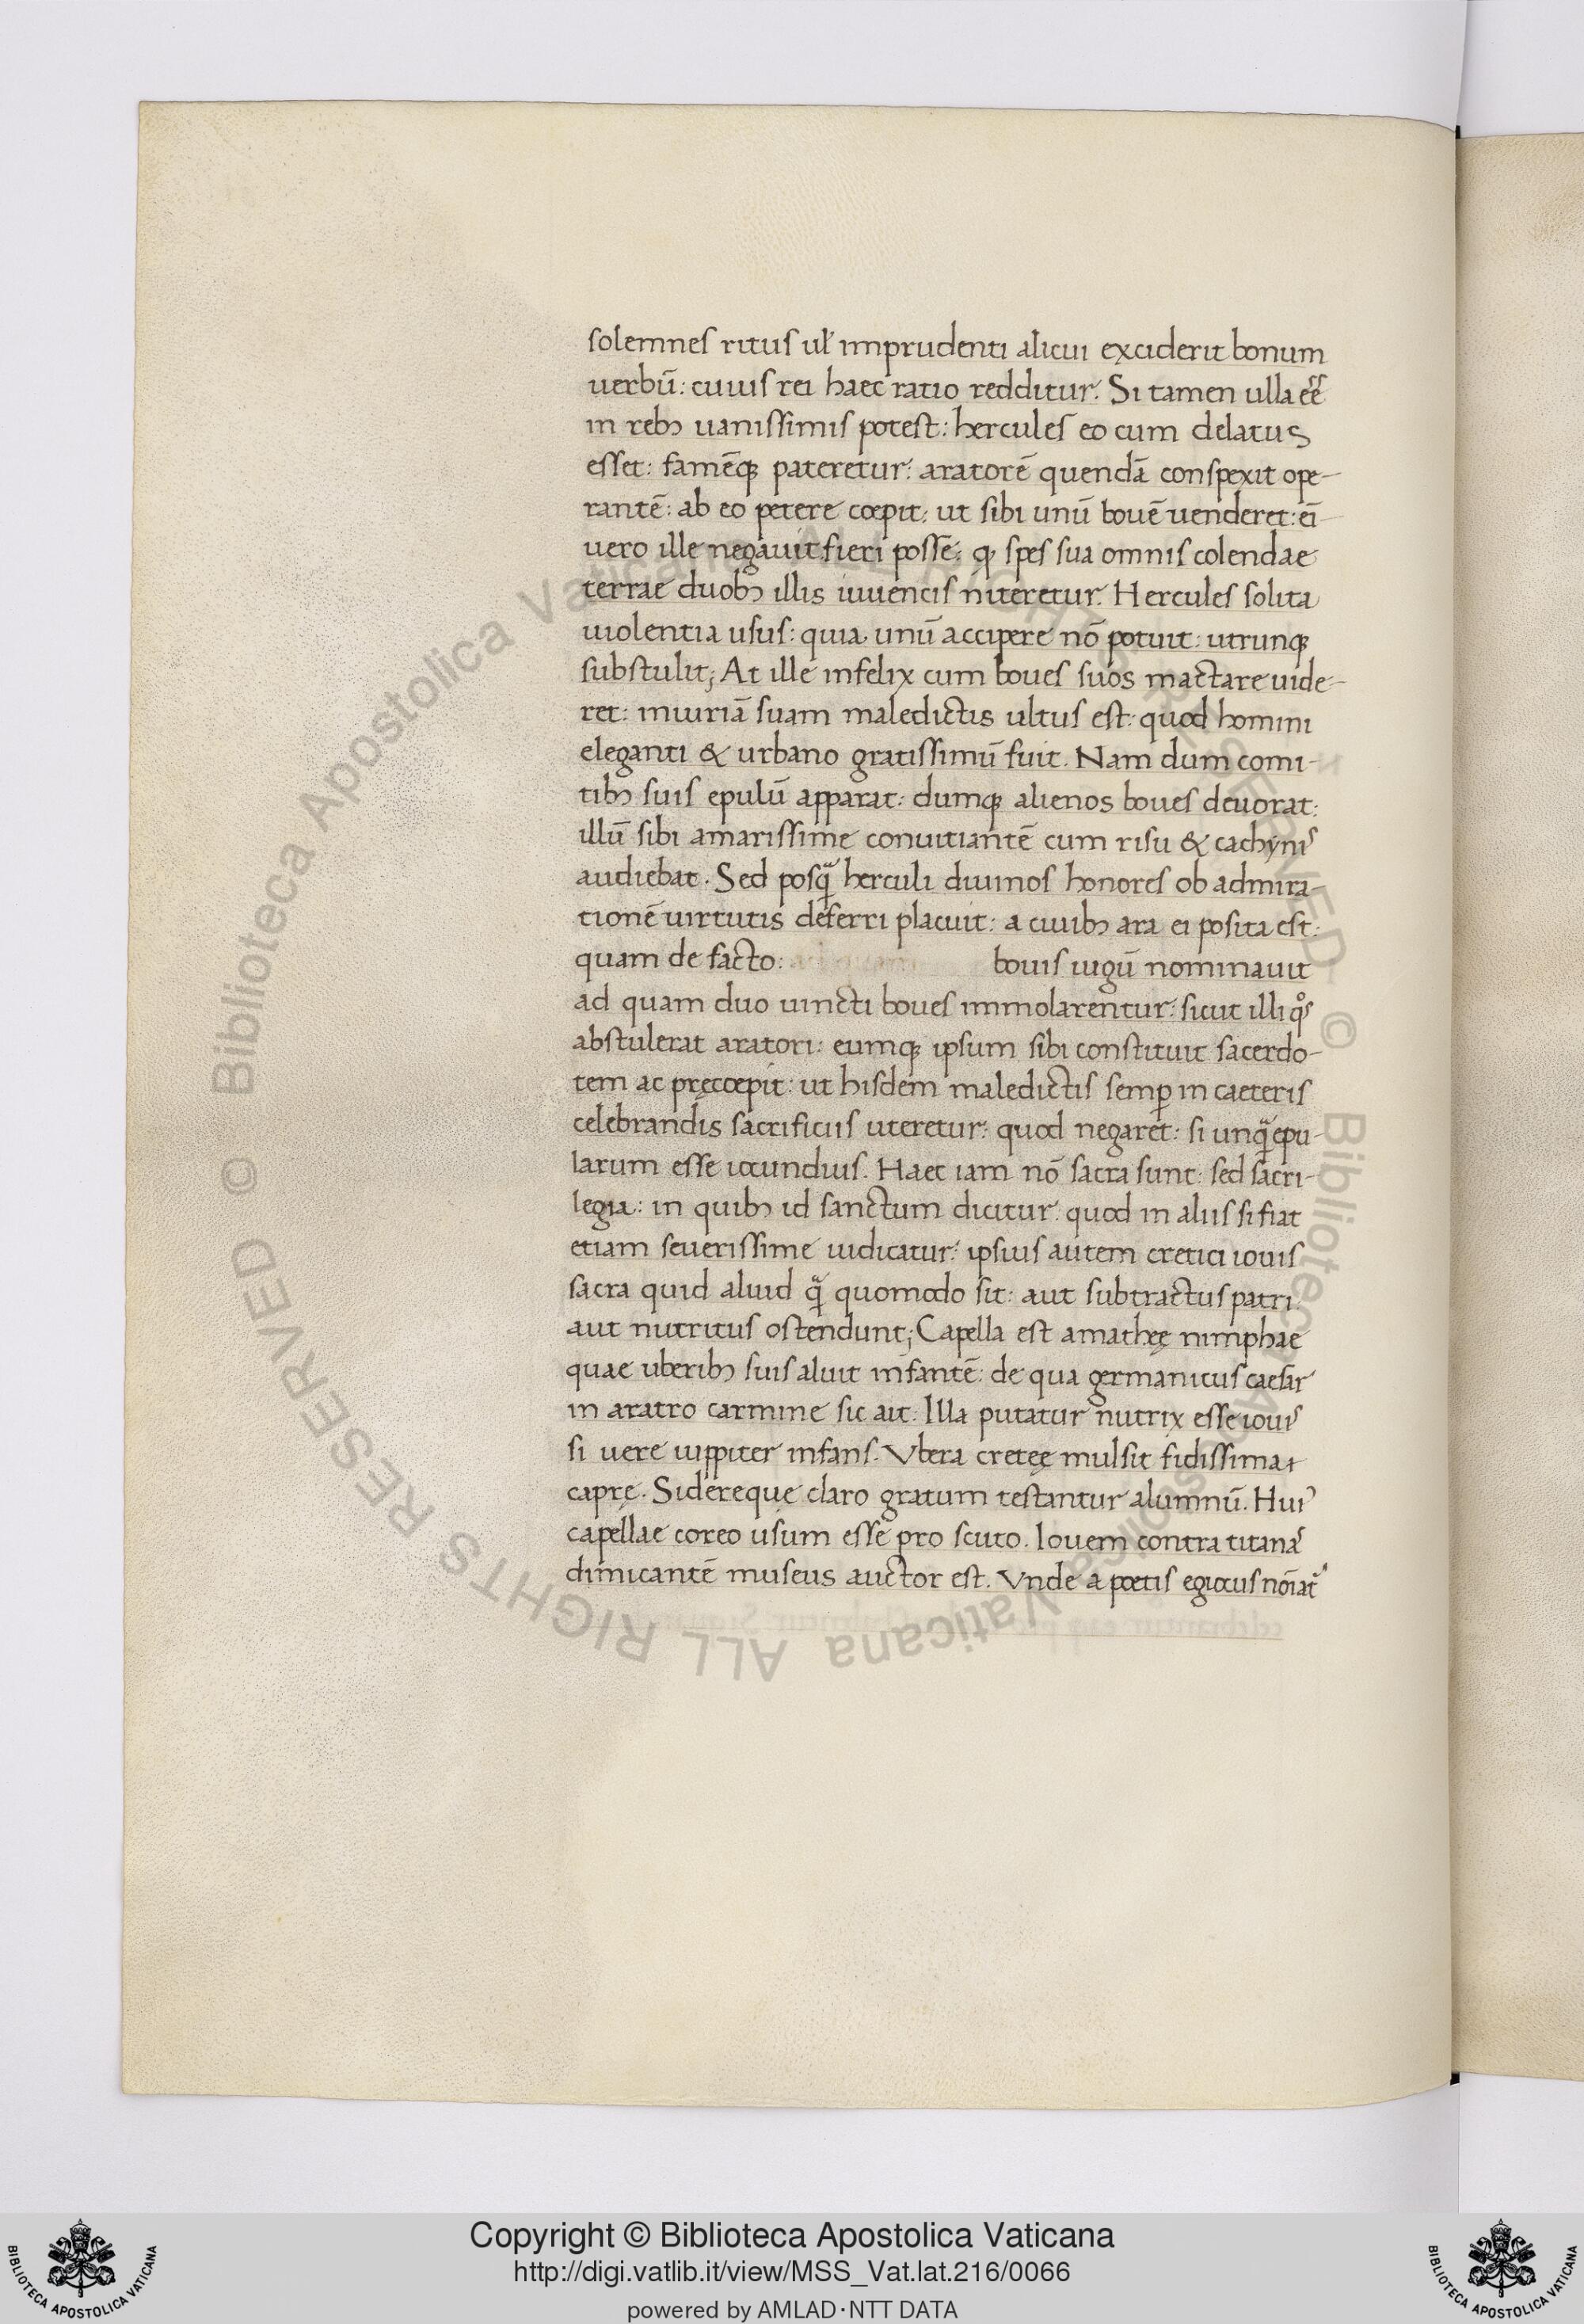 solemnes ritus ul' imprudenti alicui exciderit bonum
uerbū: cuius rei haec ratio redditur. Si tamen ulla eē
in rebꝫ uanissimis potest: hercules eo cum delatus
esset: famēqꝫ pateretur: aratorē quendā conspexit ope-
rantē: ab eo petere coepit: ut sibi unū bouē uenderet: ei
uero ille negauit fieri posse: qꝫ spes sua omnis colendae
terrae duobꝫ illis iuuencis niteretur. Hercules solita
uiolentia usus: quia unū accipere nō potuit: utrunqꝫ
substulit; At ille infelix cum boues suos mactare uide-
ret: iniuriā suam maledictis ultus est: quod homini
eleganti & urbano gratissimū fuit. Nam dum comi-
tibꝫ suis epulū apparat: dumqꝫ alienos boues deuorat:
illū sibi amarissime conuitiantē cum risu & cachynis
audiebat. Sed posqꝫ̃ herculi diuinos honores ob admira-
tionē uirtutis deferri placuit: a ciuibꝫ ara ei posita est:
quam de facto: bouis iugū nominauit
ad quam duo uincti boues immolarentur: sicut illi qͦs
abstulerat aratori: eumqꝫ ipsum sibi constituit sacerdo-
tem ac pręcoepit: ut hisdem maledictis semꝑ in caeteris
celebrandis sacrificiis uteretur: quod negaret: si unq̃ epu-
larum esse iocundius. Haec iam nō sacra sunt: sed sacri-
legia: in quibꝫ id sanctum dicitur: quod in aliis si fiat
etiam seuerissime iudicatur: ipsius autem cretici iouis
sacra quid aliud q̃ quomodo sit: aut subtractus patri
aut nutritus ostendunt; Capella est amathęę nimphae
quae uberibꝫ suis aluit infantē: de qua germanicus caesar
in aratro carmine sic ait: Illa putatur nutrix esse iouis
si uere iuppiter infans. Vbera cretęę mulsit fidissima
capre. Sidereque claro gratum testantur alumnū. Huiꝰ
capellae coreo usum esse pro scuto. Iouem contra titanas
dimicantē museus auctor est. Vnde a poetis egiocus nōiat᷑
Biblioteca Apostolica Vaticana ALL RIGHTS RESERVED ©
Copyright © Biblioteca Apostolica Vaticana
http://digi.vatlib.it/view/MSS_Vat.lat.216/0066
powered by AMLAD·NTT DATA
BIBLIOTECA APOSTOLICA VATICANA
BIBLIOTECA APOSTOLICA VATICANA